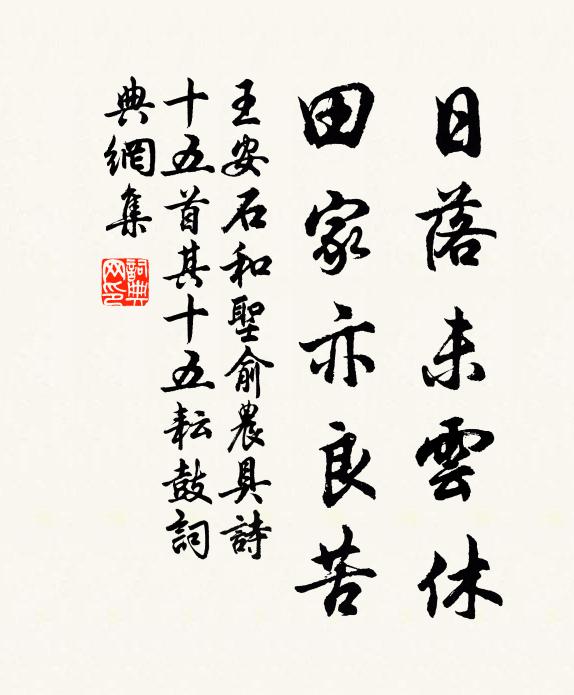 日落未雲休
田家亦良苦
王安石和聖俞農具詩
十五首其十五耘鼓詞
典網集
詞典
网印